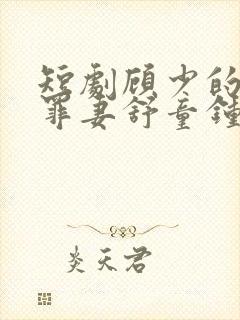 短劇顾少的
罪妻舒童鍾
炎天君